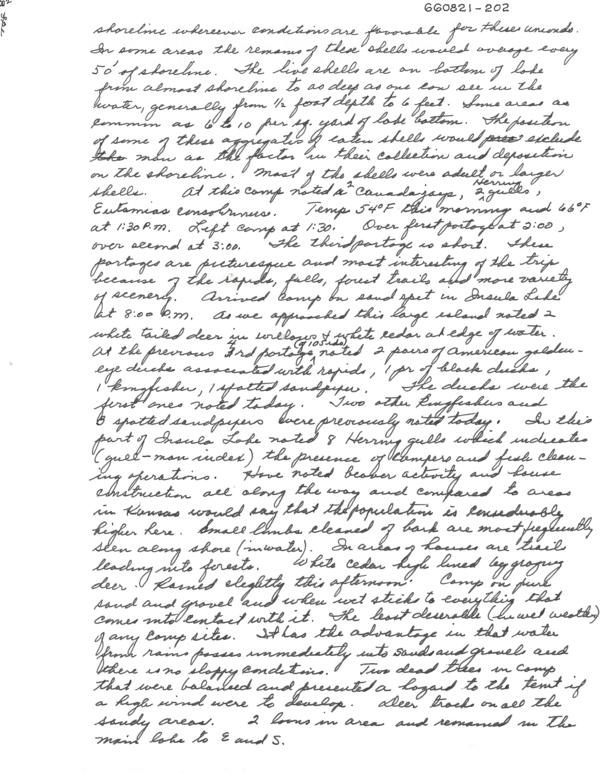 GG0821-202
shoreline whereever conditions are favorable for these unionds.
In some areas the remains of these shells would average every
50' of shoreline. The live shells are on bottom of lake
from almost shoreline to as deep as one can see in the
water, generally from 1/2 foot depth to 6 feet. Some areas as
common as 6 to 10 per sq. yard of lake bottom. The position
of some of these aggregates of eaten shells would exclude
man as the factor in their collection and deposition
on the shoreline. Most of the shells were adult or larger
shells. At this camp noted 2 Canada jays, 2 Herring gulls,
Eutamias Temp 54°F this morning and 66°F
at 1:30 P.M. Left camp at 1:30. Over first portage at 2:00,
over second at 3:00. The third portage is short. These
portages are picturesque and most interesting of the trip
because of the rapids, falls, forest trails and more variety
of scenery. Arrived camp on sand spit in Insula Lake
at 8:00 P.M. As we approached this large island noted 2
white tailed deer in willows & white cedar at edge of water.
At the previous 3rd portage noted 2 pairs of American golden-
eye ducks associated with rapids, 1 pr of black ducks,
1 kingfisher, 1 spotted sandpiper. The ducks were the
first ones noted today. Two other kingfishers and
spotted sandpipers were previously noted today. In this
part of Insula Lake noted 8 Herring gulls which indicates
(gull-man index) the presence of campers and fish clean-
ing operations. Have noted beaver activity and house
construction all along the way and compared to areas
in Kansas would say that the population is considerably
higher here. Small limbs cleaned of bark are most frequently
seen along shore (in water). In areas of houses are trails
leading into forests. White cedar high lined by
deer. Rained slightly this afternoon. Camp on pure
sand and gravel and when wet sticks to everything that
comes into contact with it. The least deserable (in wet weather)
of any camp sites. It has the advantage in that water
from rains passes immediately into sands and gravels and
there is no sloppy conditions. Two dead trees in camp
that were balanced and presented a hazard to the tent if
a high wind were to develop. Deer tracks on all the
sandy areas. 2 loons in area and remained in the
main lake to E and S.